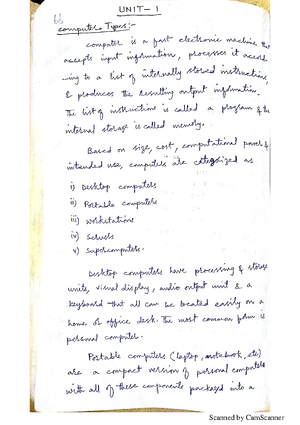 66
UNIT - 1
Computer Types:-
Computer is a fast electronic machine that
accepts input information, processes it accord
-ing to a list of internally stored instructions,
& produces the resulting output information.
The list of instructions is called a program & the
internal storage is called memory.
Based on size, cost, computational power &
intended use, computers are categorized as
i) Desktop computers
ii) Portable computers
iii) Workstations
iv) Servers
v) Supercomputers.
Desktop computers have processing & storage
units, visual display, audio output unit & a
keyboard that all can be located easily on a
home or office desk. The most common form is
personal computer.
Portable computers (laptop, notebook, etc)
are a compact version of personal computers
with all of these components packaged into a
Scanned by CamScanner